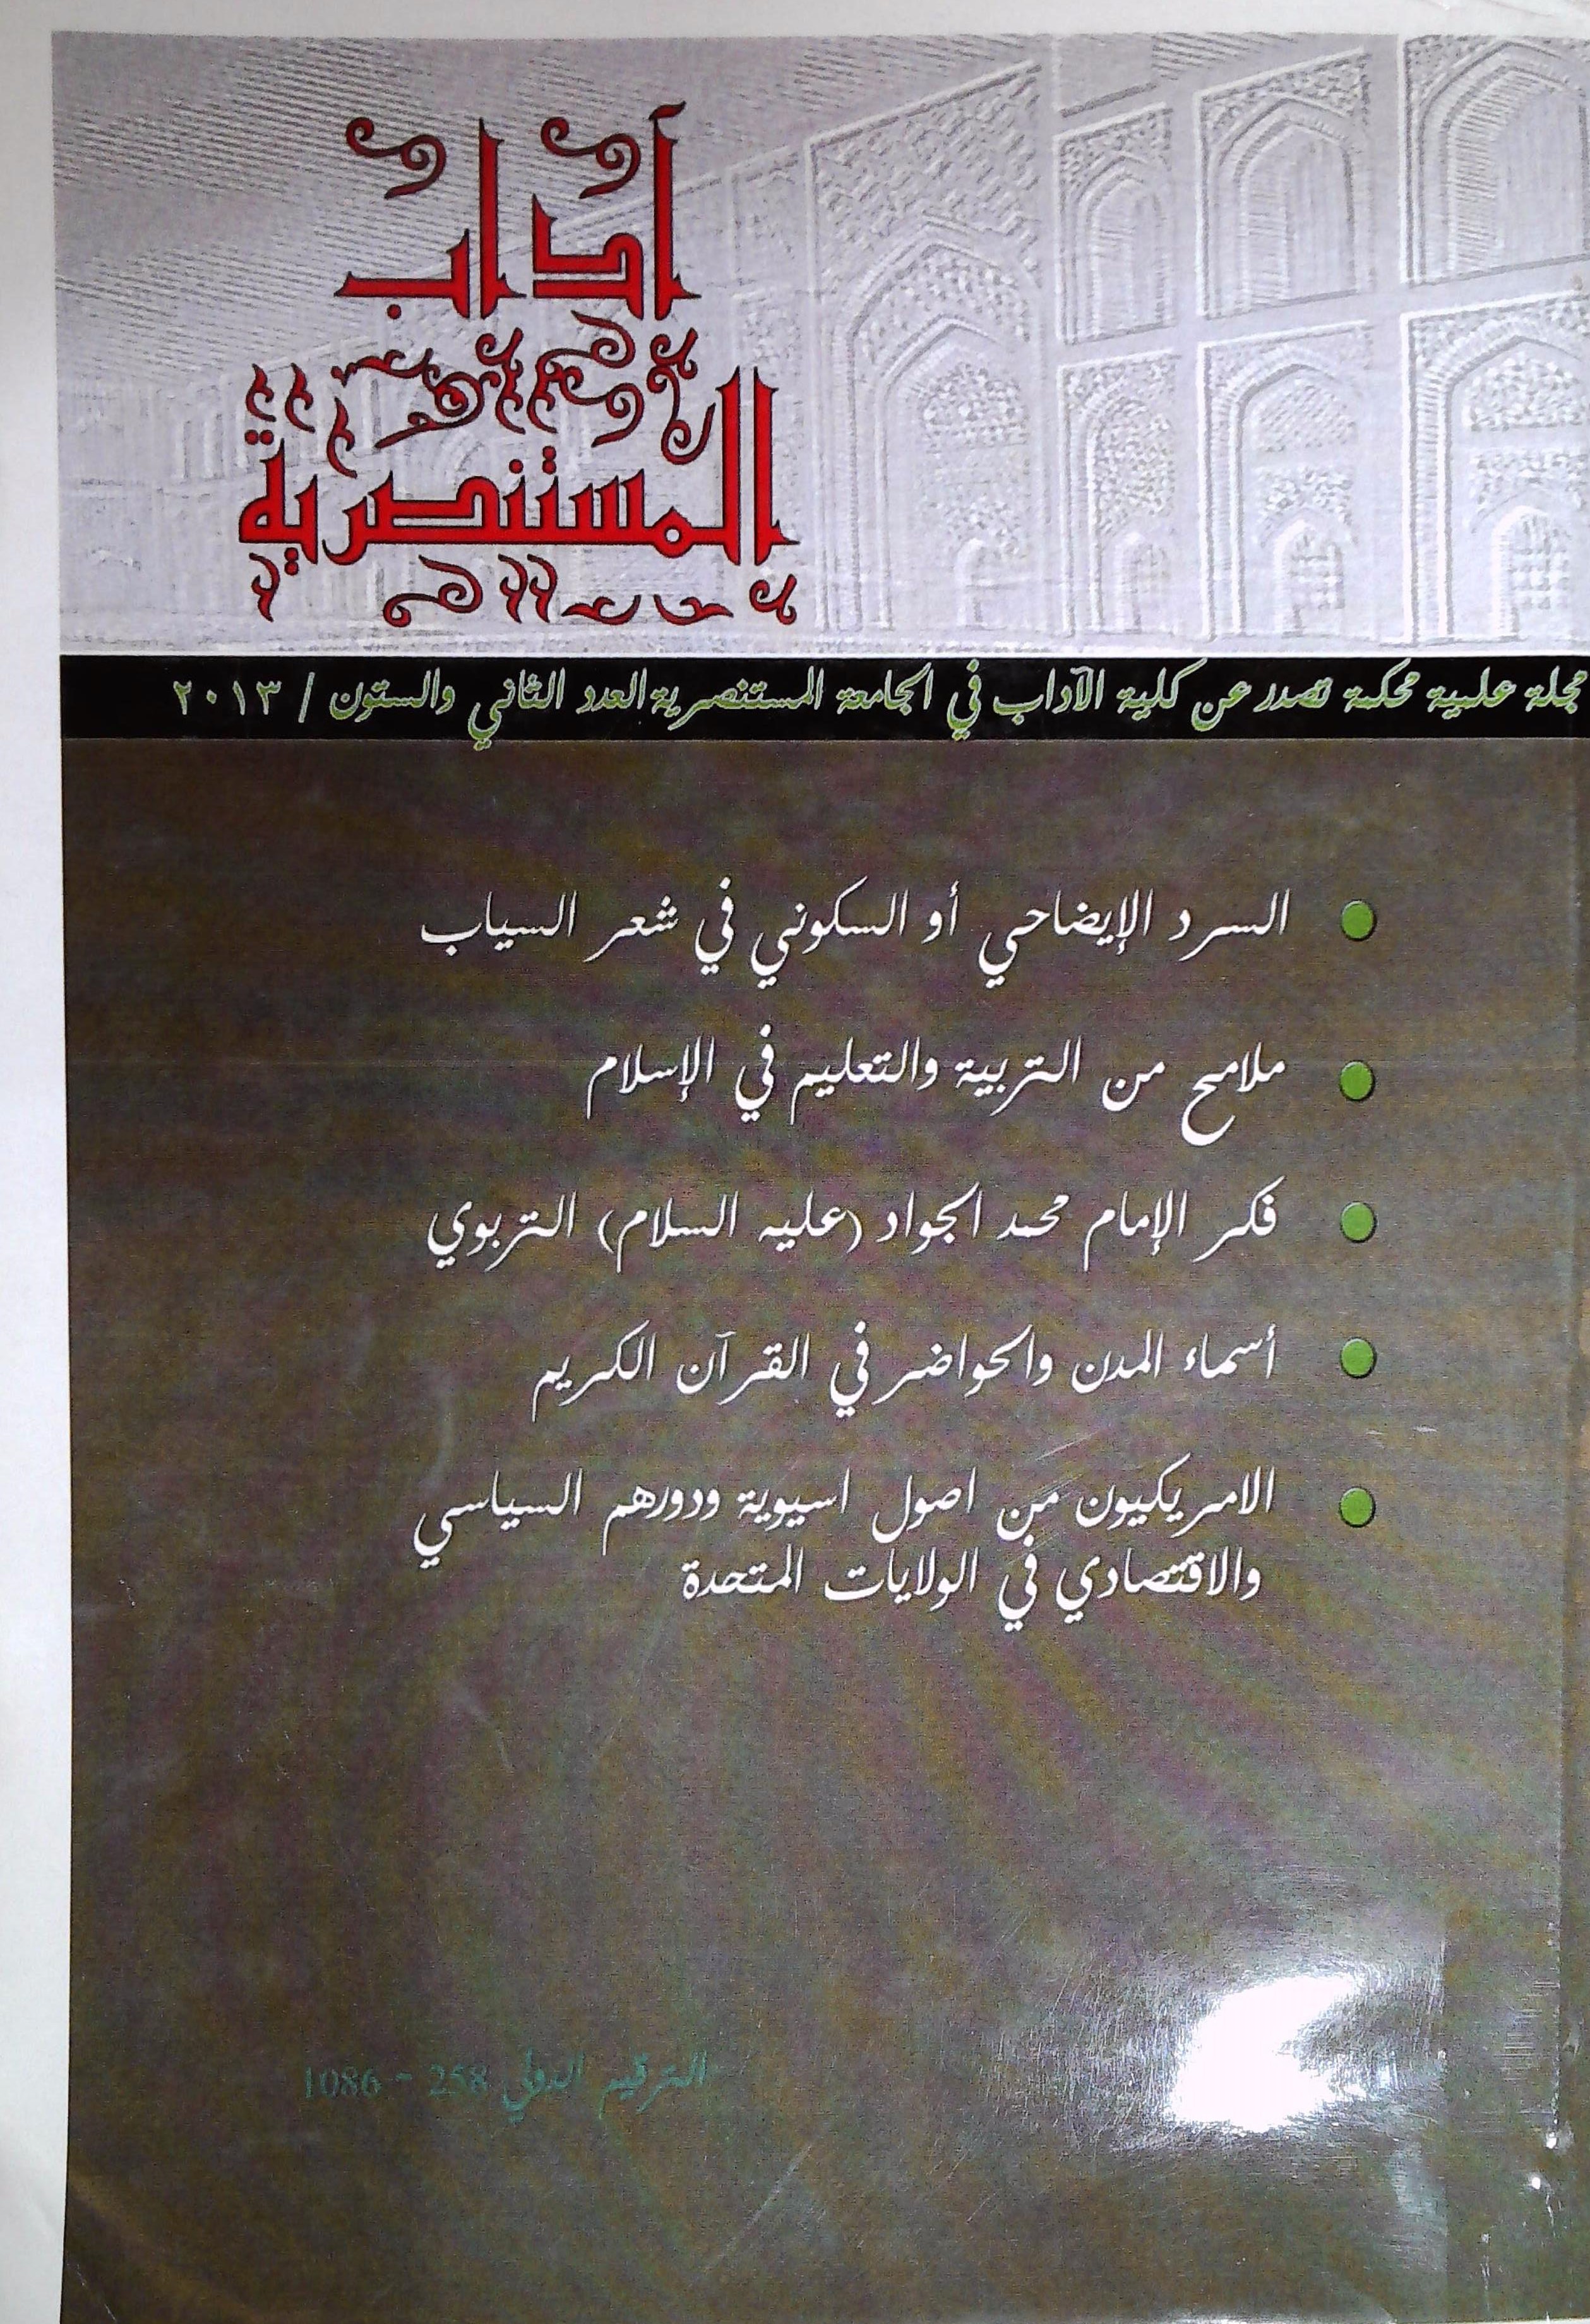 آداب
المستنصرية
مجلة علمية محكمة تصدر عن كلية الآداب في الجامعة المستنصرية العدد الثاني والستون / ٢٠١٣
السرد الإيضاحي أو السكوني في شعر السياب
ملامح من التربية والتعليم في الإسلام
فكر الإمام محمد الجواد (عليه السلام) التربوي
أسماء المدن والحواضر في القرآن الكريم
الامريكيون من اصول اسيوية ودورهم السياسي
والاقتصادي في الولايات المتحدة
الترقيم الدولي 258 - 1086